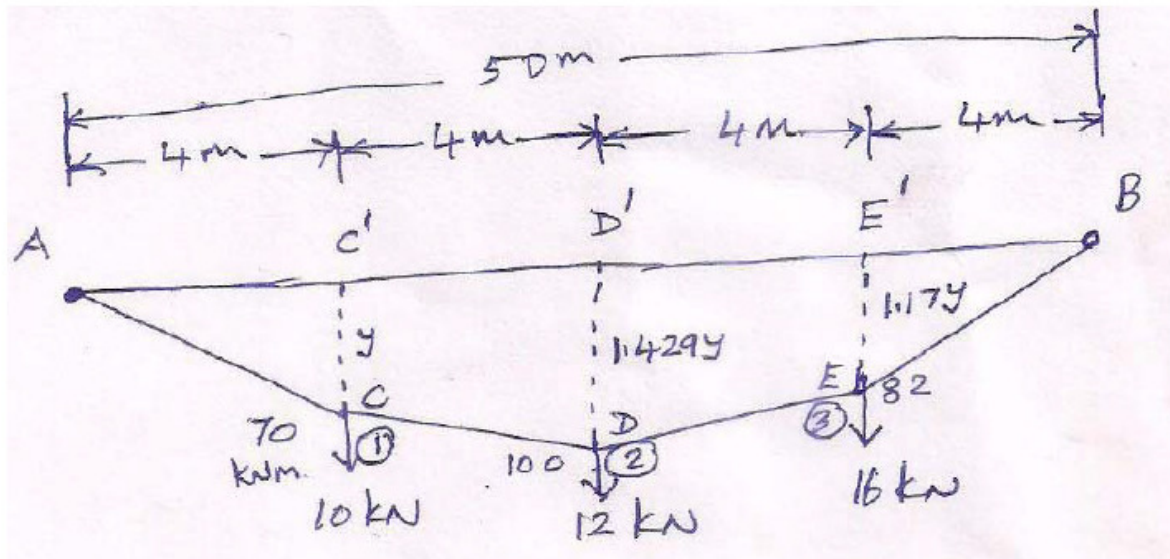 50m
4m 4m 4m 4m
A C' D' E' B
y 1.429y 1.17y
C D E 82
70 ① 100 ② ③
kNm.
10 kN 12 kN 16 kN